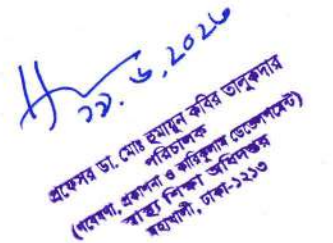 ২১.৬.2026
প্রফেসর ডা. মোঃ হুমায়ুন কবির তালুকদার
পরিচালক
(গবেষণা, প্রকাশনা ও কারিকুলাম ডেভেলপমেন্ট)
স্বাস্থ্য শিক্ষা অধিদপ্তর
মহাখালী, ঢাকা-১২১৩